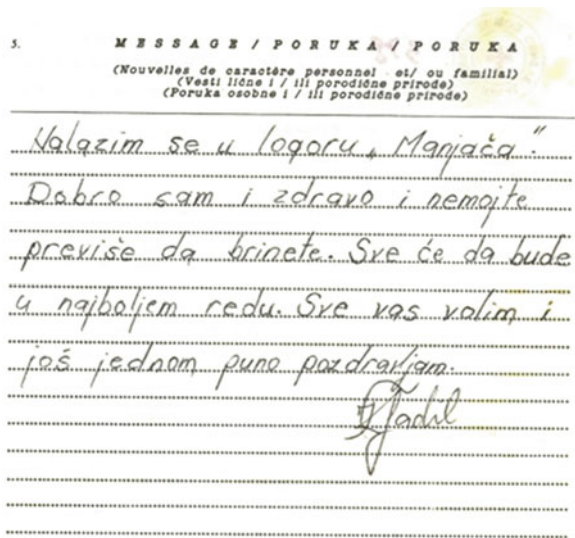 5. MESSAGE / PORUKA / PORUKA
(Nouvelles de caractère personnel et/ ou familial)
(Vesti lične i / ili porodične prirode)
(Poruka osobne i / ili porodične prirode)
Nalazim se u logoru „Manjača".
Dobro sam i zdravo i nemojte
previše da brinete. Sve će da bude
u najboljem redu. Sve vas volim i
još jednom puno pozdravljam.